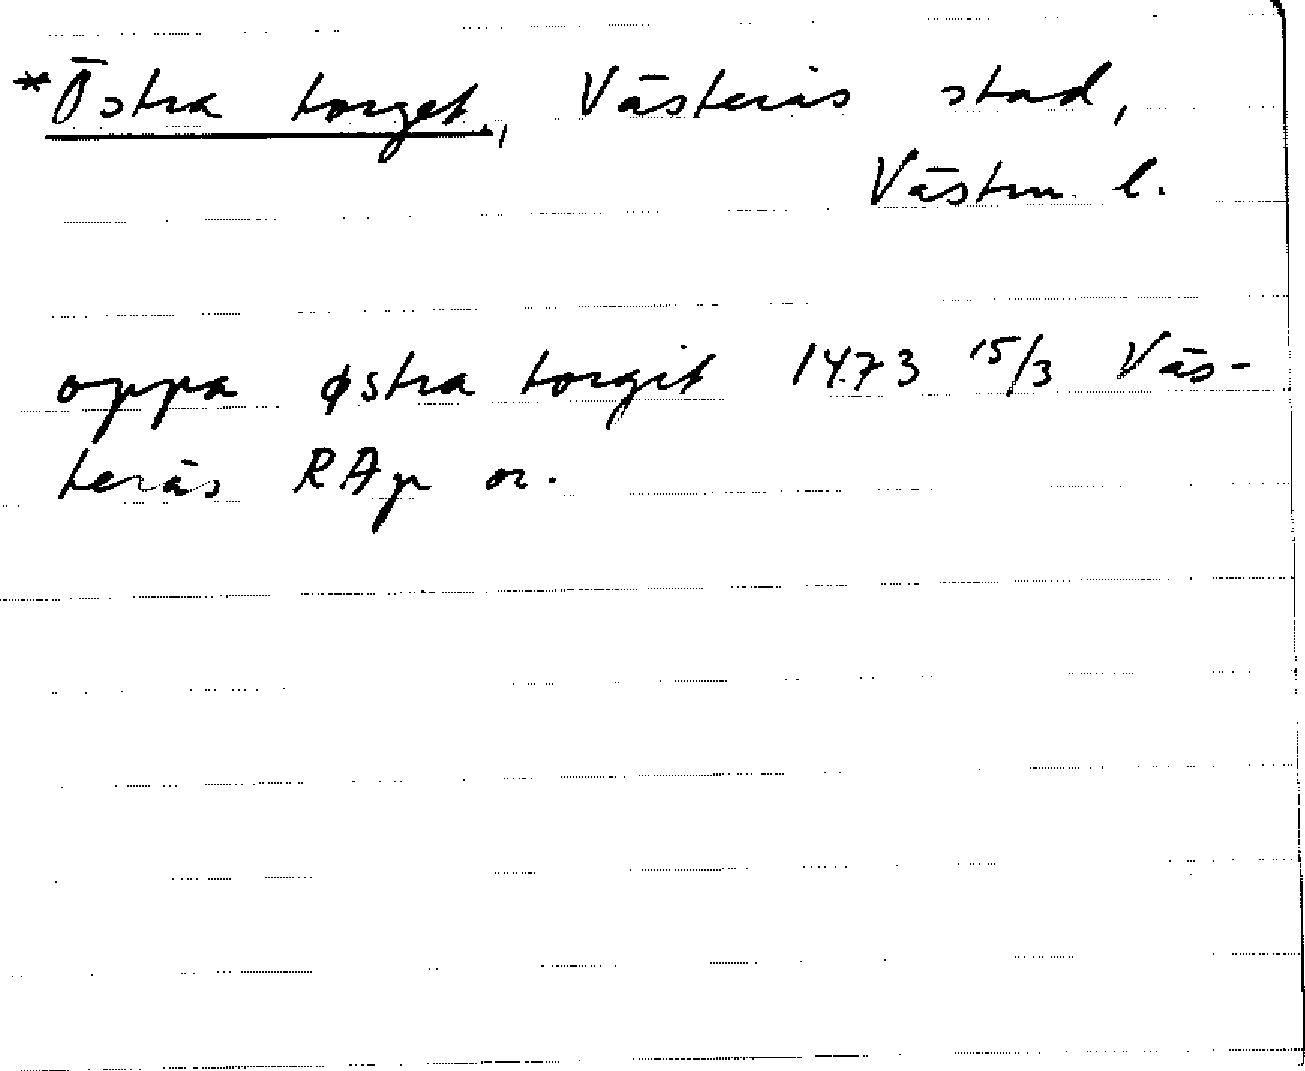 *Östra torget, Västerås stad,
Västm. l.
oppa østra torgit 1473 15/3 Väs-
terås RAp or.